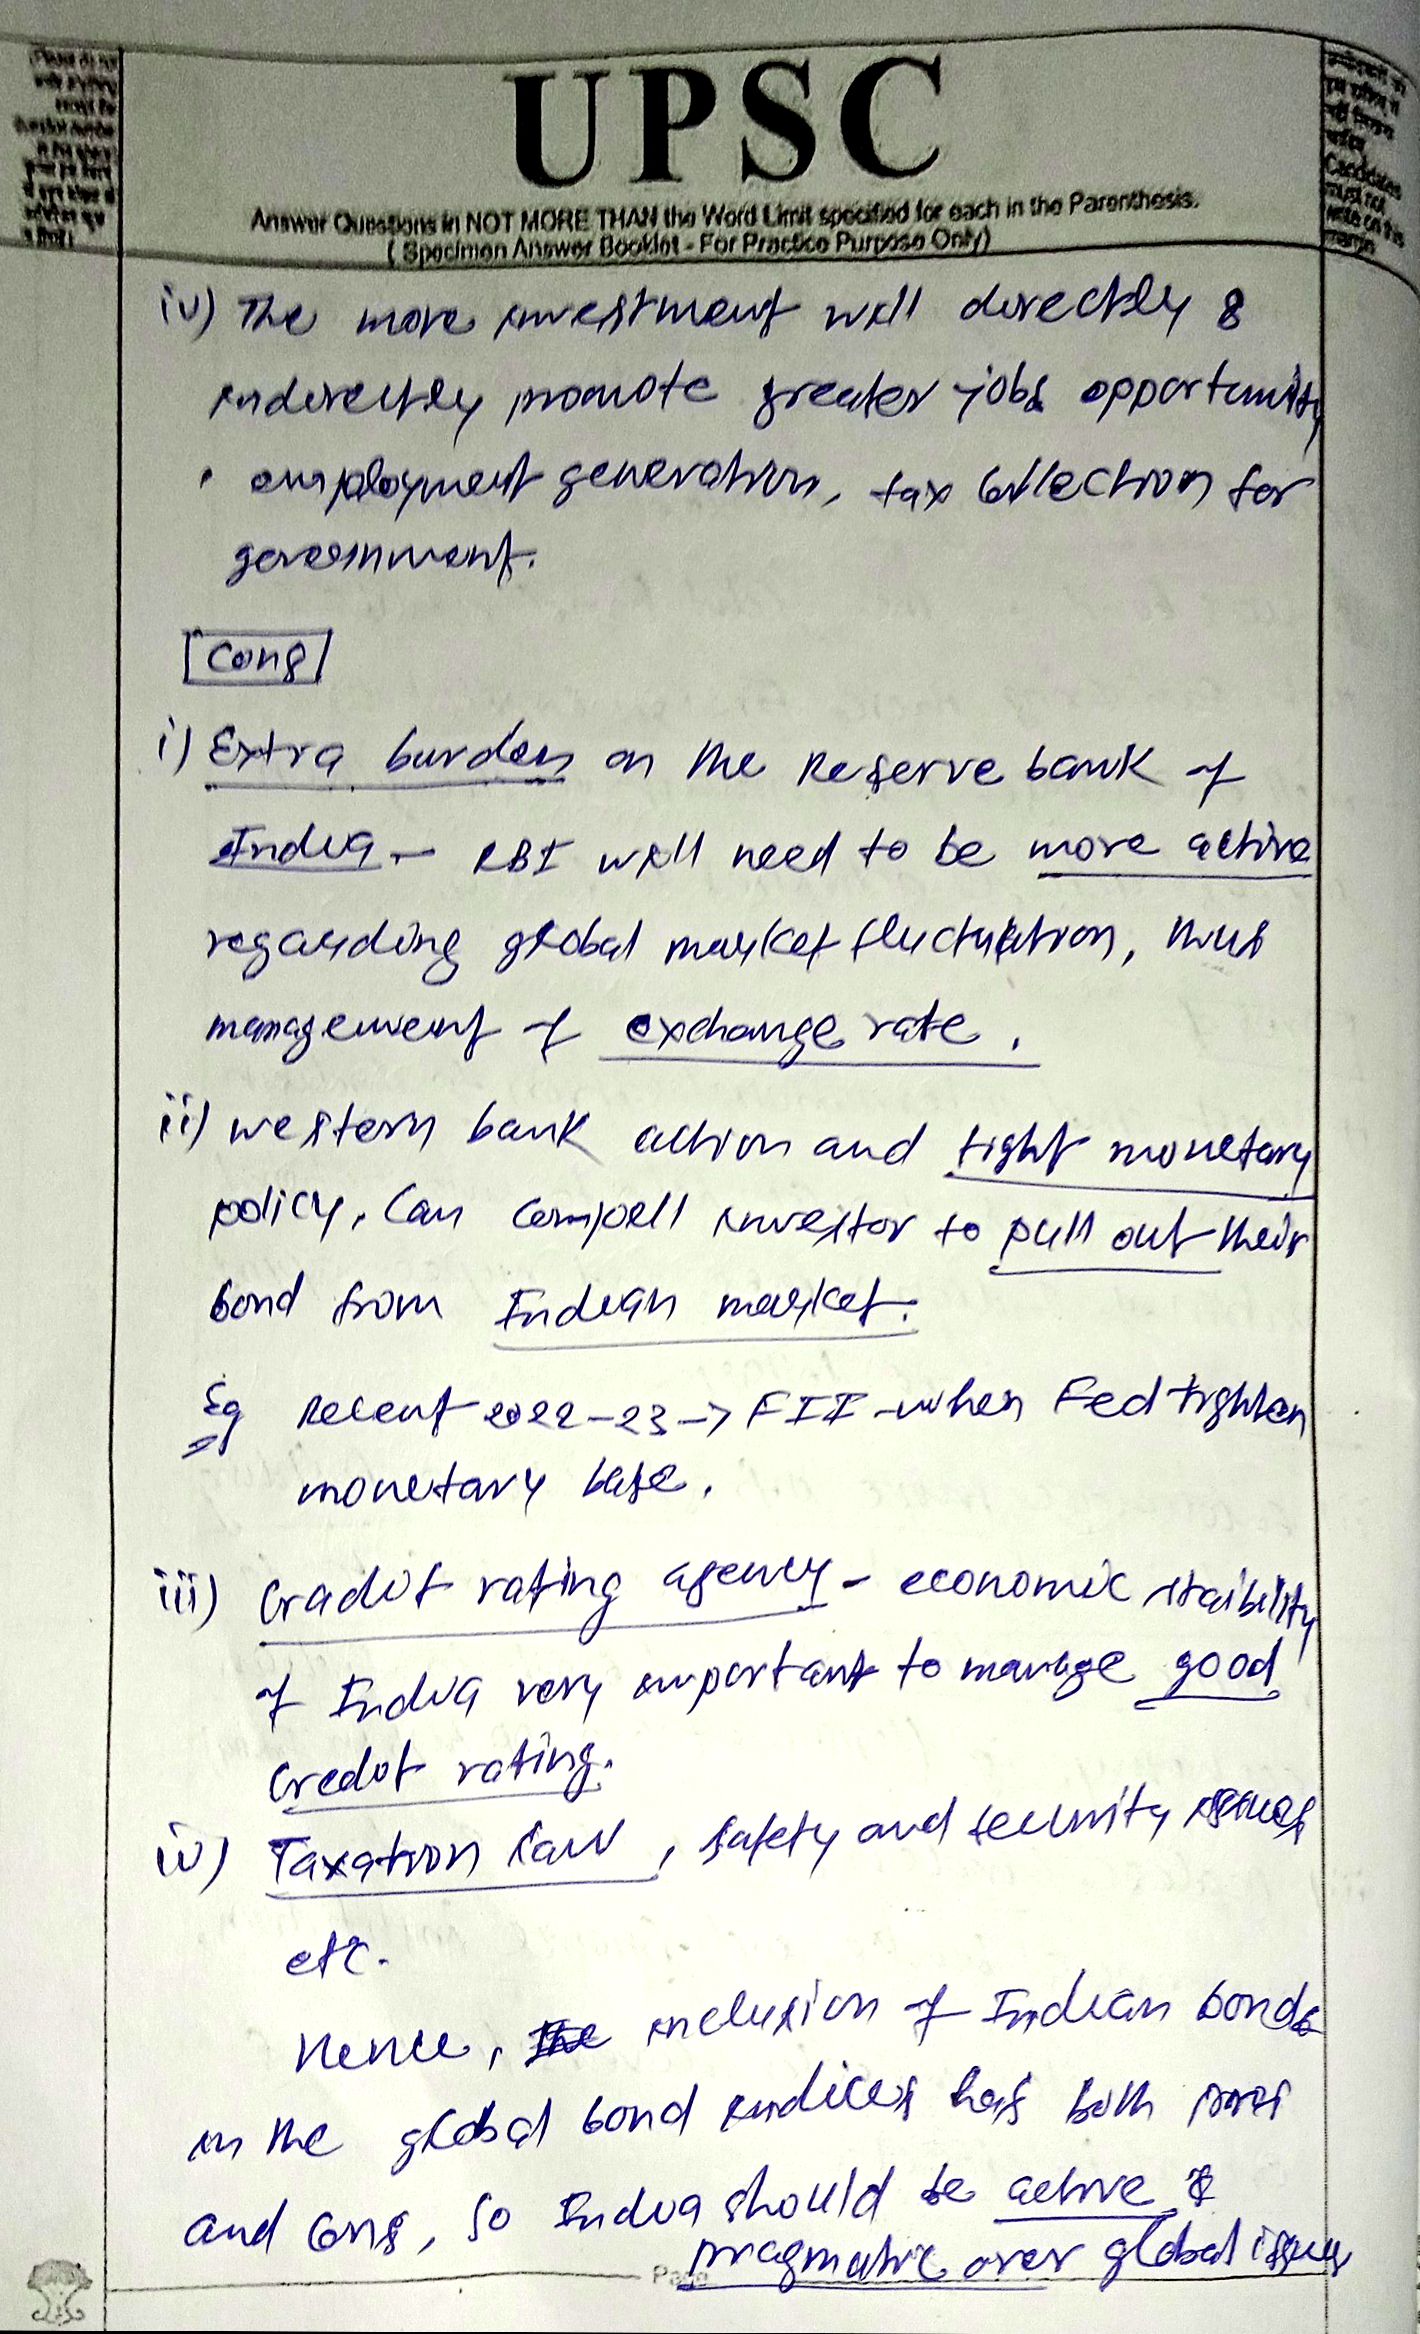 UPSC
Answer Questions in NOT MORE THAN the Word Limit specified for each in the Parenthesis.
( Specimen Answer Booklet - For Practice Purpose Only)
Candidates
must not
write on this
margin
iv) The more investment will directly &
indirectly promote greater jobs opportunity
• employment generation, tax collection for
government.
Cons
i) Extra burden on the Reserve bank of
India - RBI will need to be more active
regarding global market fluctuation, thus
management of exchange rate.
ii) western bank action and tight monetary
policy, can compell investor to pull out their
bond from Indian market.
Eg Recent 2022-23 → FII - when Fed tighten
monetary base.
iii) Cradit rating agency - economic staibility
of India very important to manage good
credit rating.
iv) Taxation law, safety and security issues
etc.
Hence, the inclusion of Indian bonds
in the global bond indices has both pros
and cons, so India should be active &
pragmatic over global issues
Page